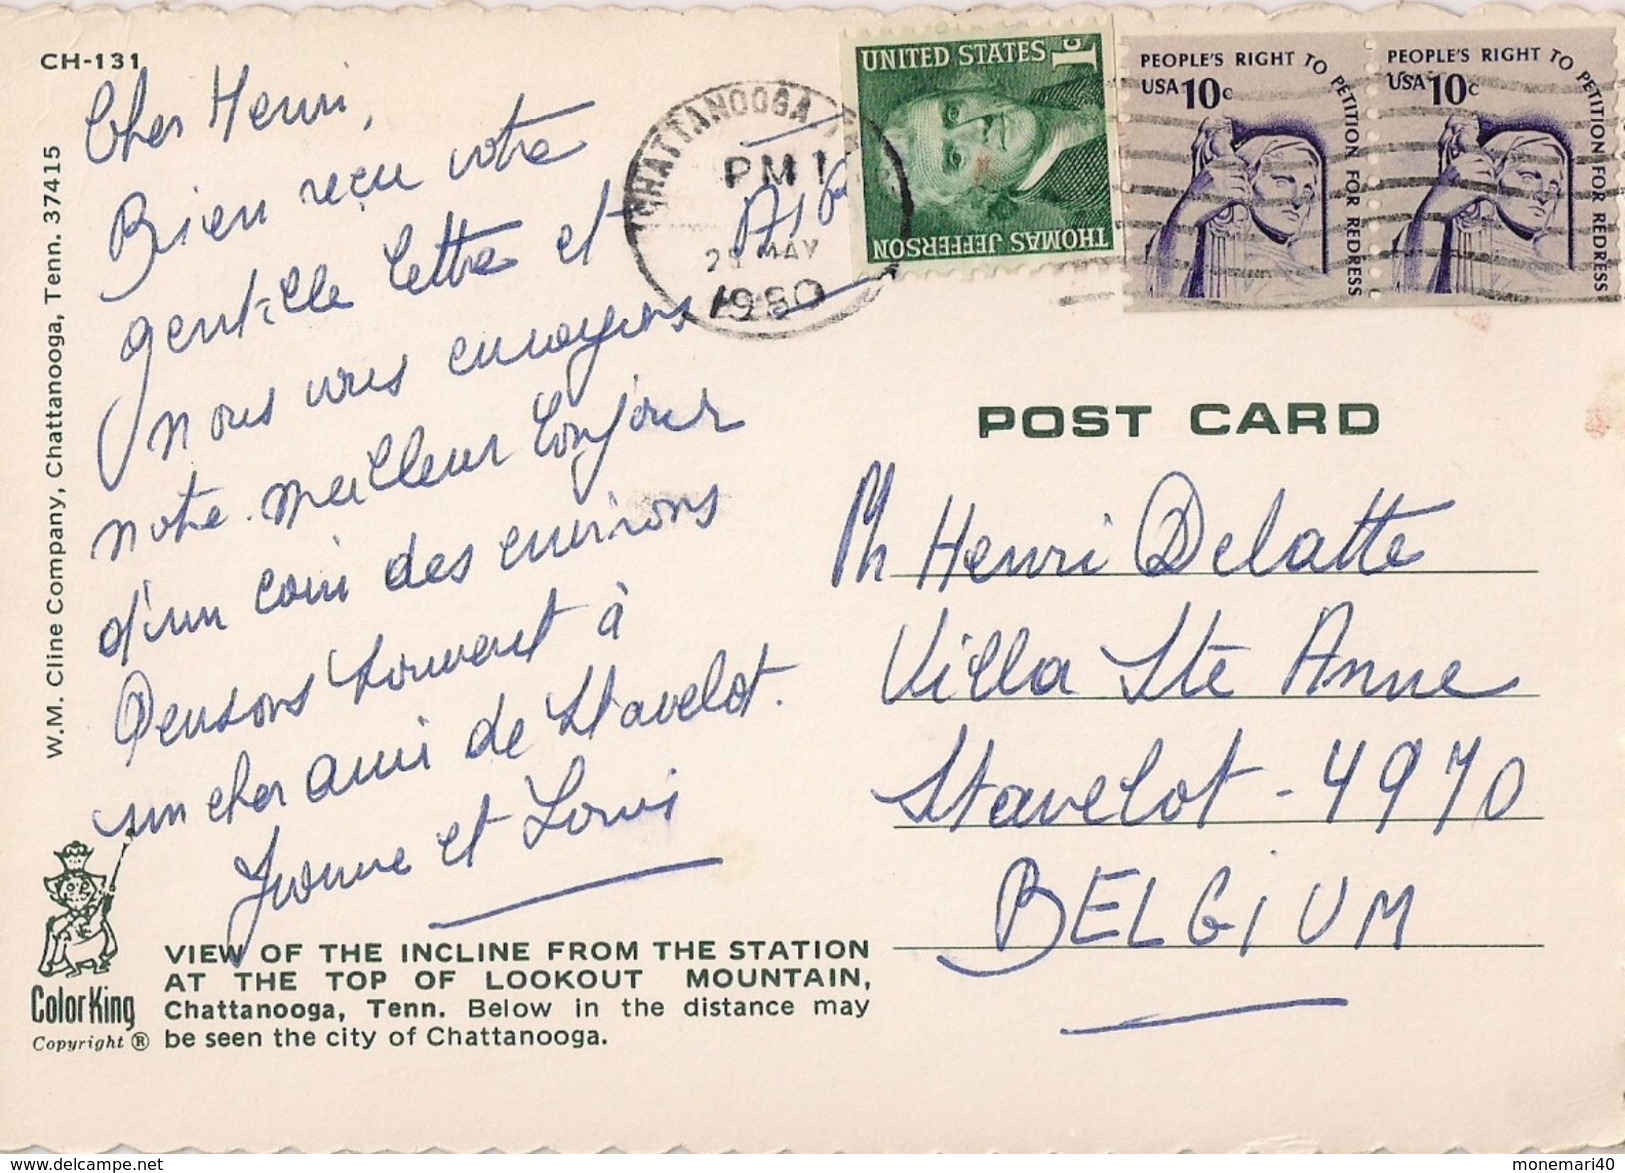 CH-131
Cher Henri,
Bien reçu votre
gentille lettre et
nous vous envoyons
notre meilleur bonjour
d'un coin des environs
Pensons souvent à
un cher ami de Stavelot.
Yvonne et Louis
W.M. Cline Company, Chattanooga, Tenn. 37415
ColorKing
Copyright ®
VIEW OF THE INCLINE FROM THE STATION
AT THE TOP OF LOOKOUT MOUNTAIN,
Chattanooga, Tenn. Below in the distance may
be seen the city of Chattanooga.
CHATTANOOGA
PM
MAY
1980
UNITED STATES
1c
THOMAS JEFFERSON
PEOPLE'S RIGHT TO PETITION FOR REDRESS
USA 10c
PEOPLE'S RIGHT TO PETITION FOR REDRESS
USA 10c
POST CARD
Mr Henri Delatte
Villa Ste Anne
Stavelot - 4970
BELGIUM
www.delcampe.net
monemari40